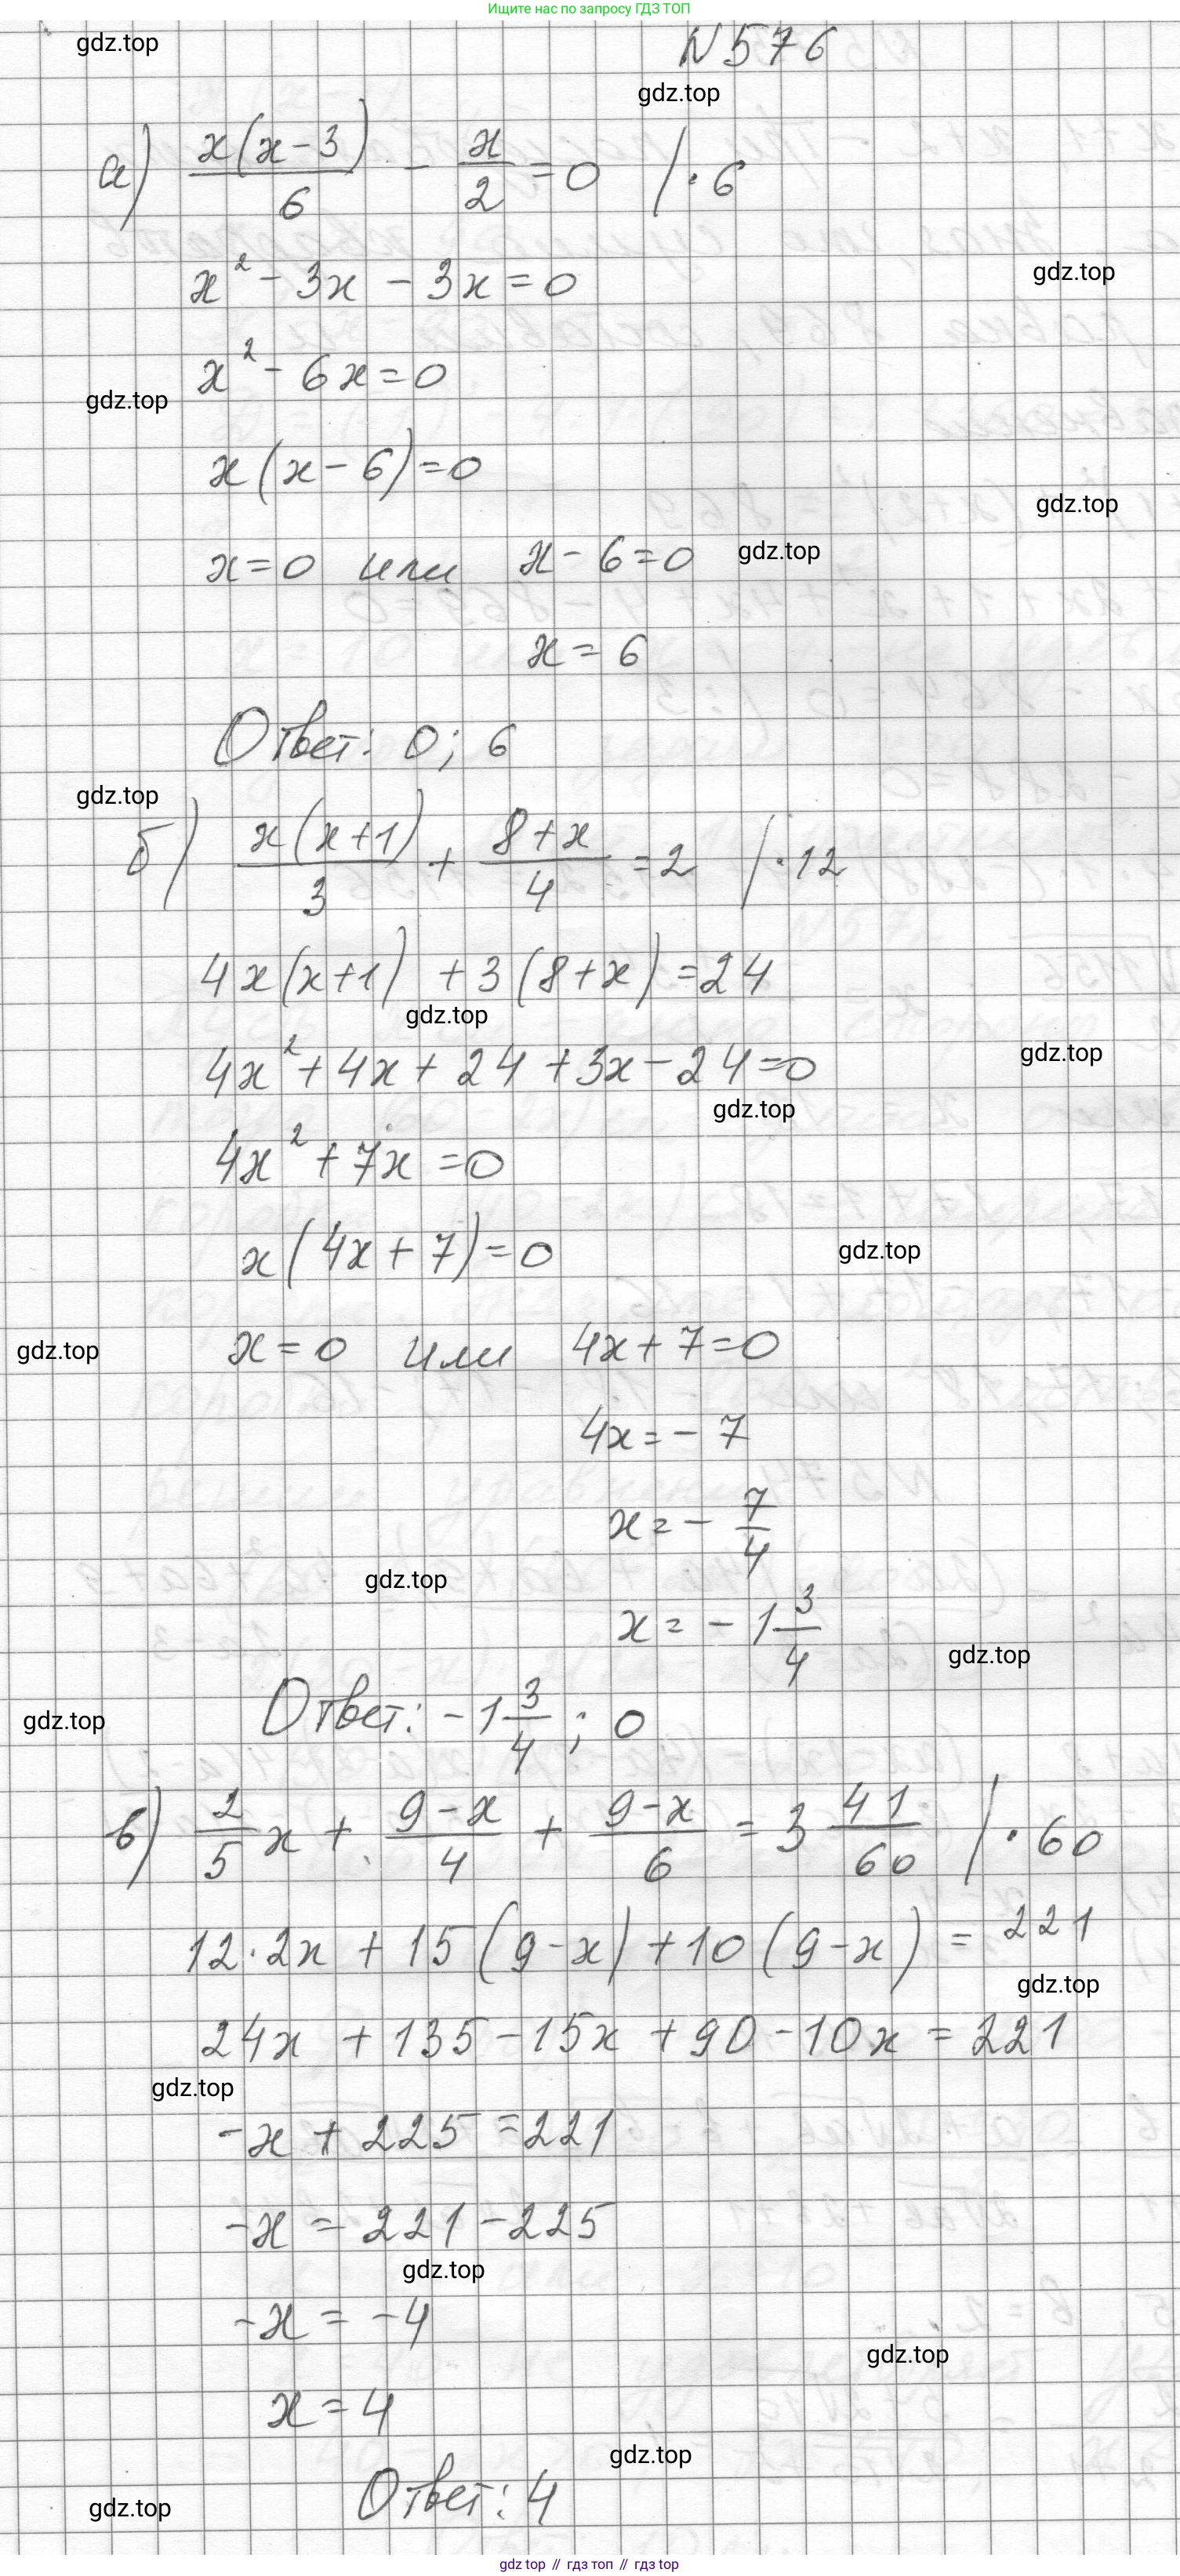 Ищите нас по запросу ГДЗ ТОП
gdz.top
N576
gdz.top
а) x(x-3)/6 - x/2 = 0 | · 6
gdz.top
x² - 3x - 3x = 0
x² - 6x = 0
gdz.top
x(x - 6) = 0
gdz.top
x = 0 или x - 6 = 0 gdz.top
x = 6
Ответ: 0; 6
gdz.top
б) x(x+1)/3 + 8+x/4 = 2 | · 12
4x(x+1) + 3(8+x) = 24
gdz.top
gdz.top
4x² + 4x + 24 + 3x - 24 = 0
gdz.top
4x² + 7x = 0
x(4x + 7) = 0
gdz.top
gdz.top x = 0 или 4x + 7 = 0
4x = - 7
x = - 7/4
gdz.top
x = - 1 3/4
gdz.top
gdz.top Ответ: - 1 3/4; 0
в) 2/5 x + 9-x/4 + 9-x/6 = 3 41/60 | · 60
12 · 2x + 15(9-x) + 10(9-x) = 221
gdz.top
24x + 135 - 15x + 90 - 10x = 221
gdz.top
-x + 225 = 221
-x = 221 - 225
gdz.top
-x = -4
gdz.top
x = 4
gdz.top
Ответ: 4
gdz.top
gdz top // гдз топ // gdz top